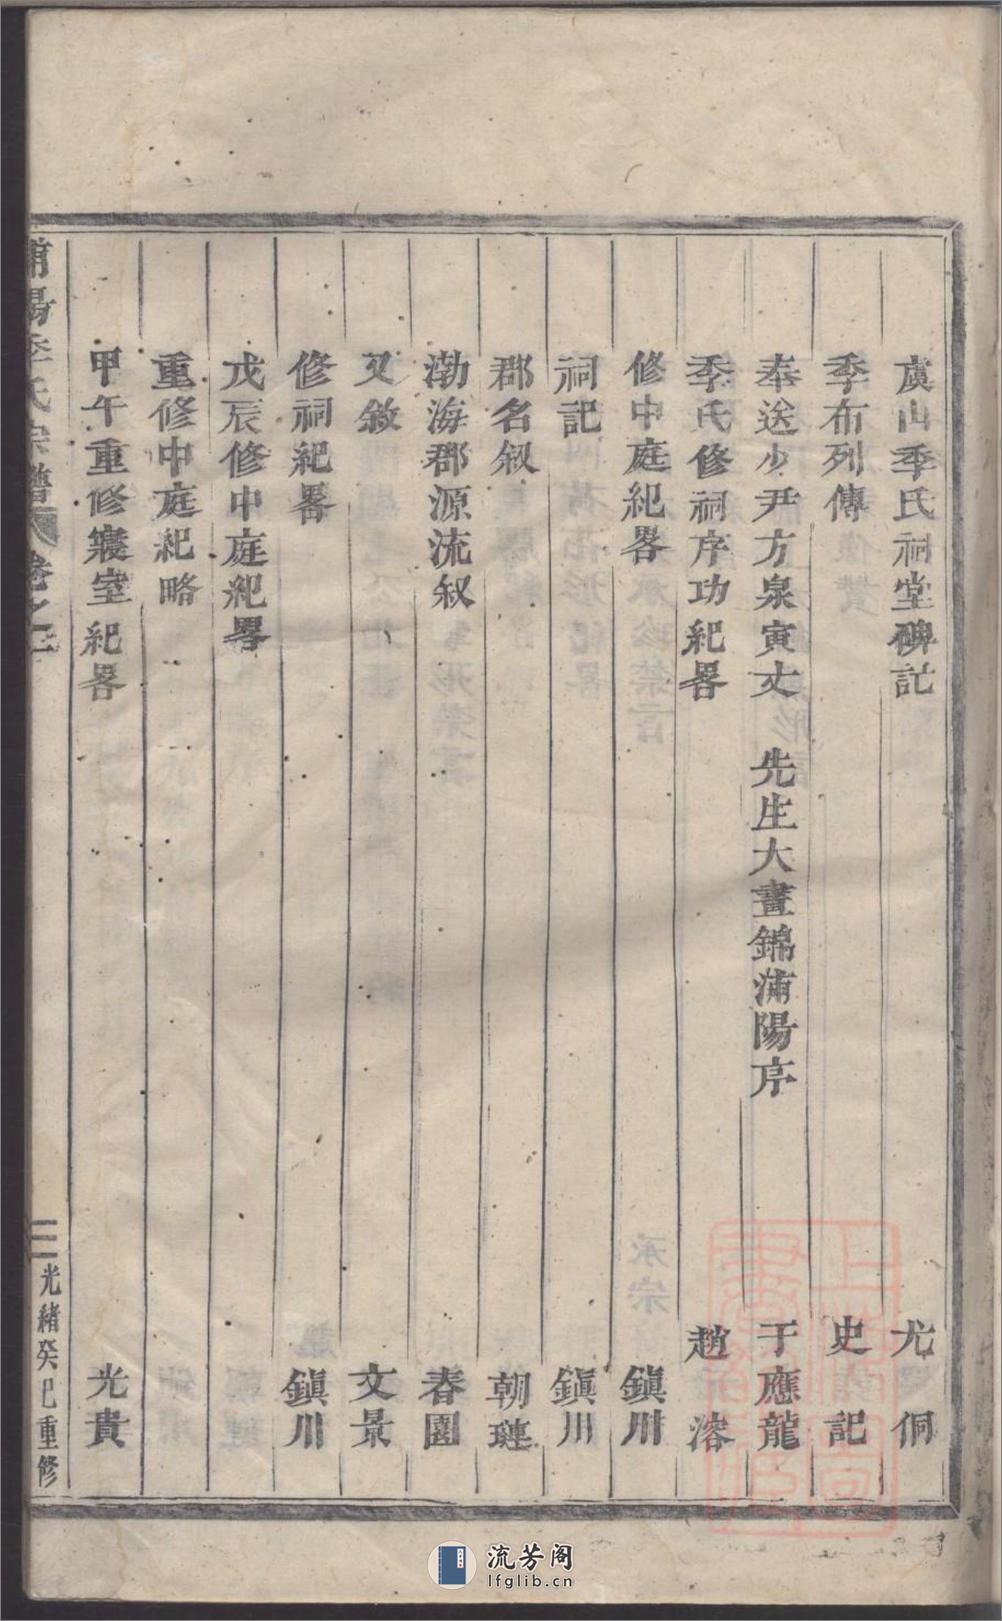 虞山季氏祠堂碑記 尤侗
季布列傳 史記
奉送少尹方泉寅丈 先生大畫錦蒲陽序 于應龍
季氏修祠序功紀畧 趙溶
修中庭紀畧 鎭川
祠記 鎭川
郡名叙 朝璉
渤海郡源流叙 春園
又敘 文景
修祠紀畧 鎭川
戊辰修中庭紀畧
重修中庭紀略
甲午重修寢室紀畧 光貴
浦陽季氏宗譜 卷之一 二 光緒癸巳重修
流芳阁
lfglib.cn